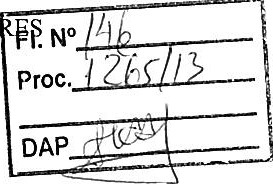 RES
Fl. Nº 146
Proc. 1265/13
DAP